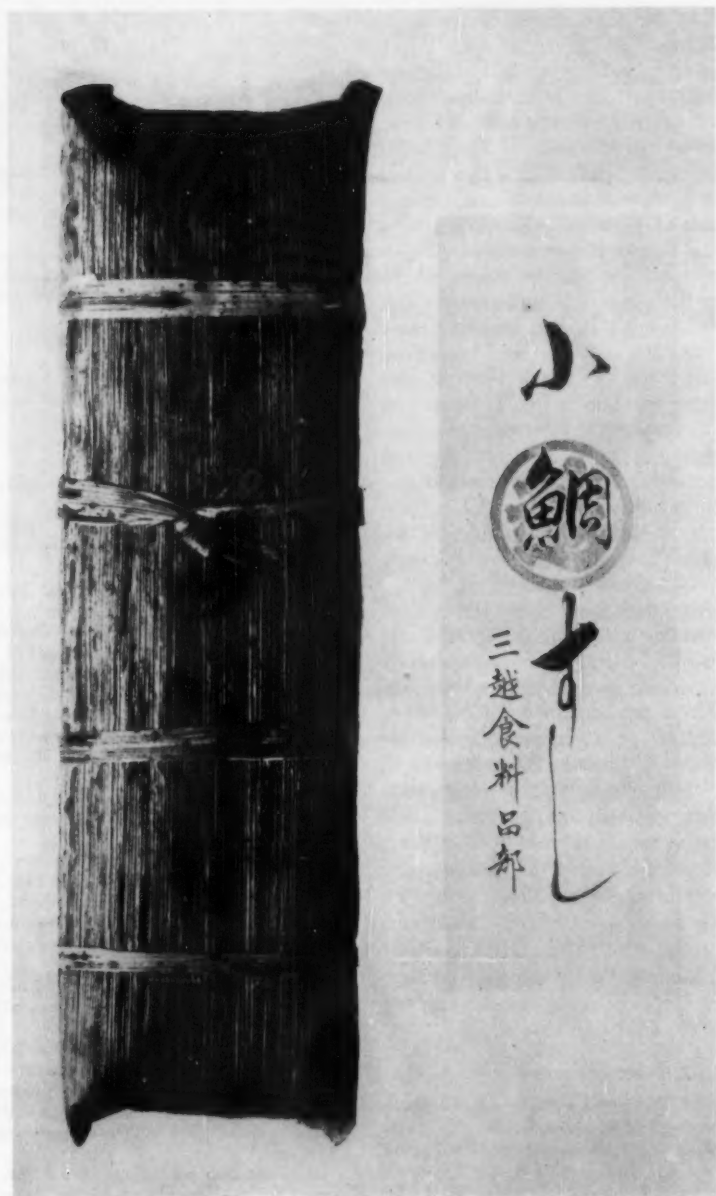 小鯛すし
三越食料品部